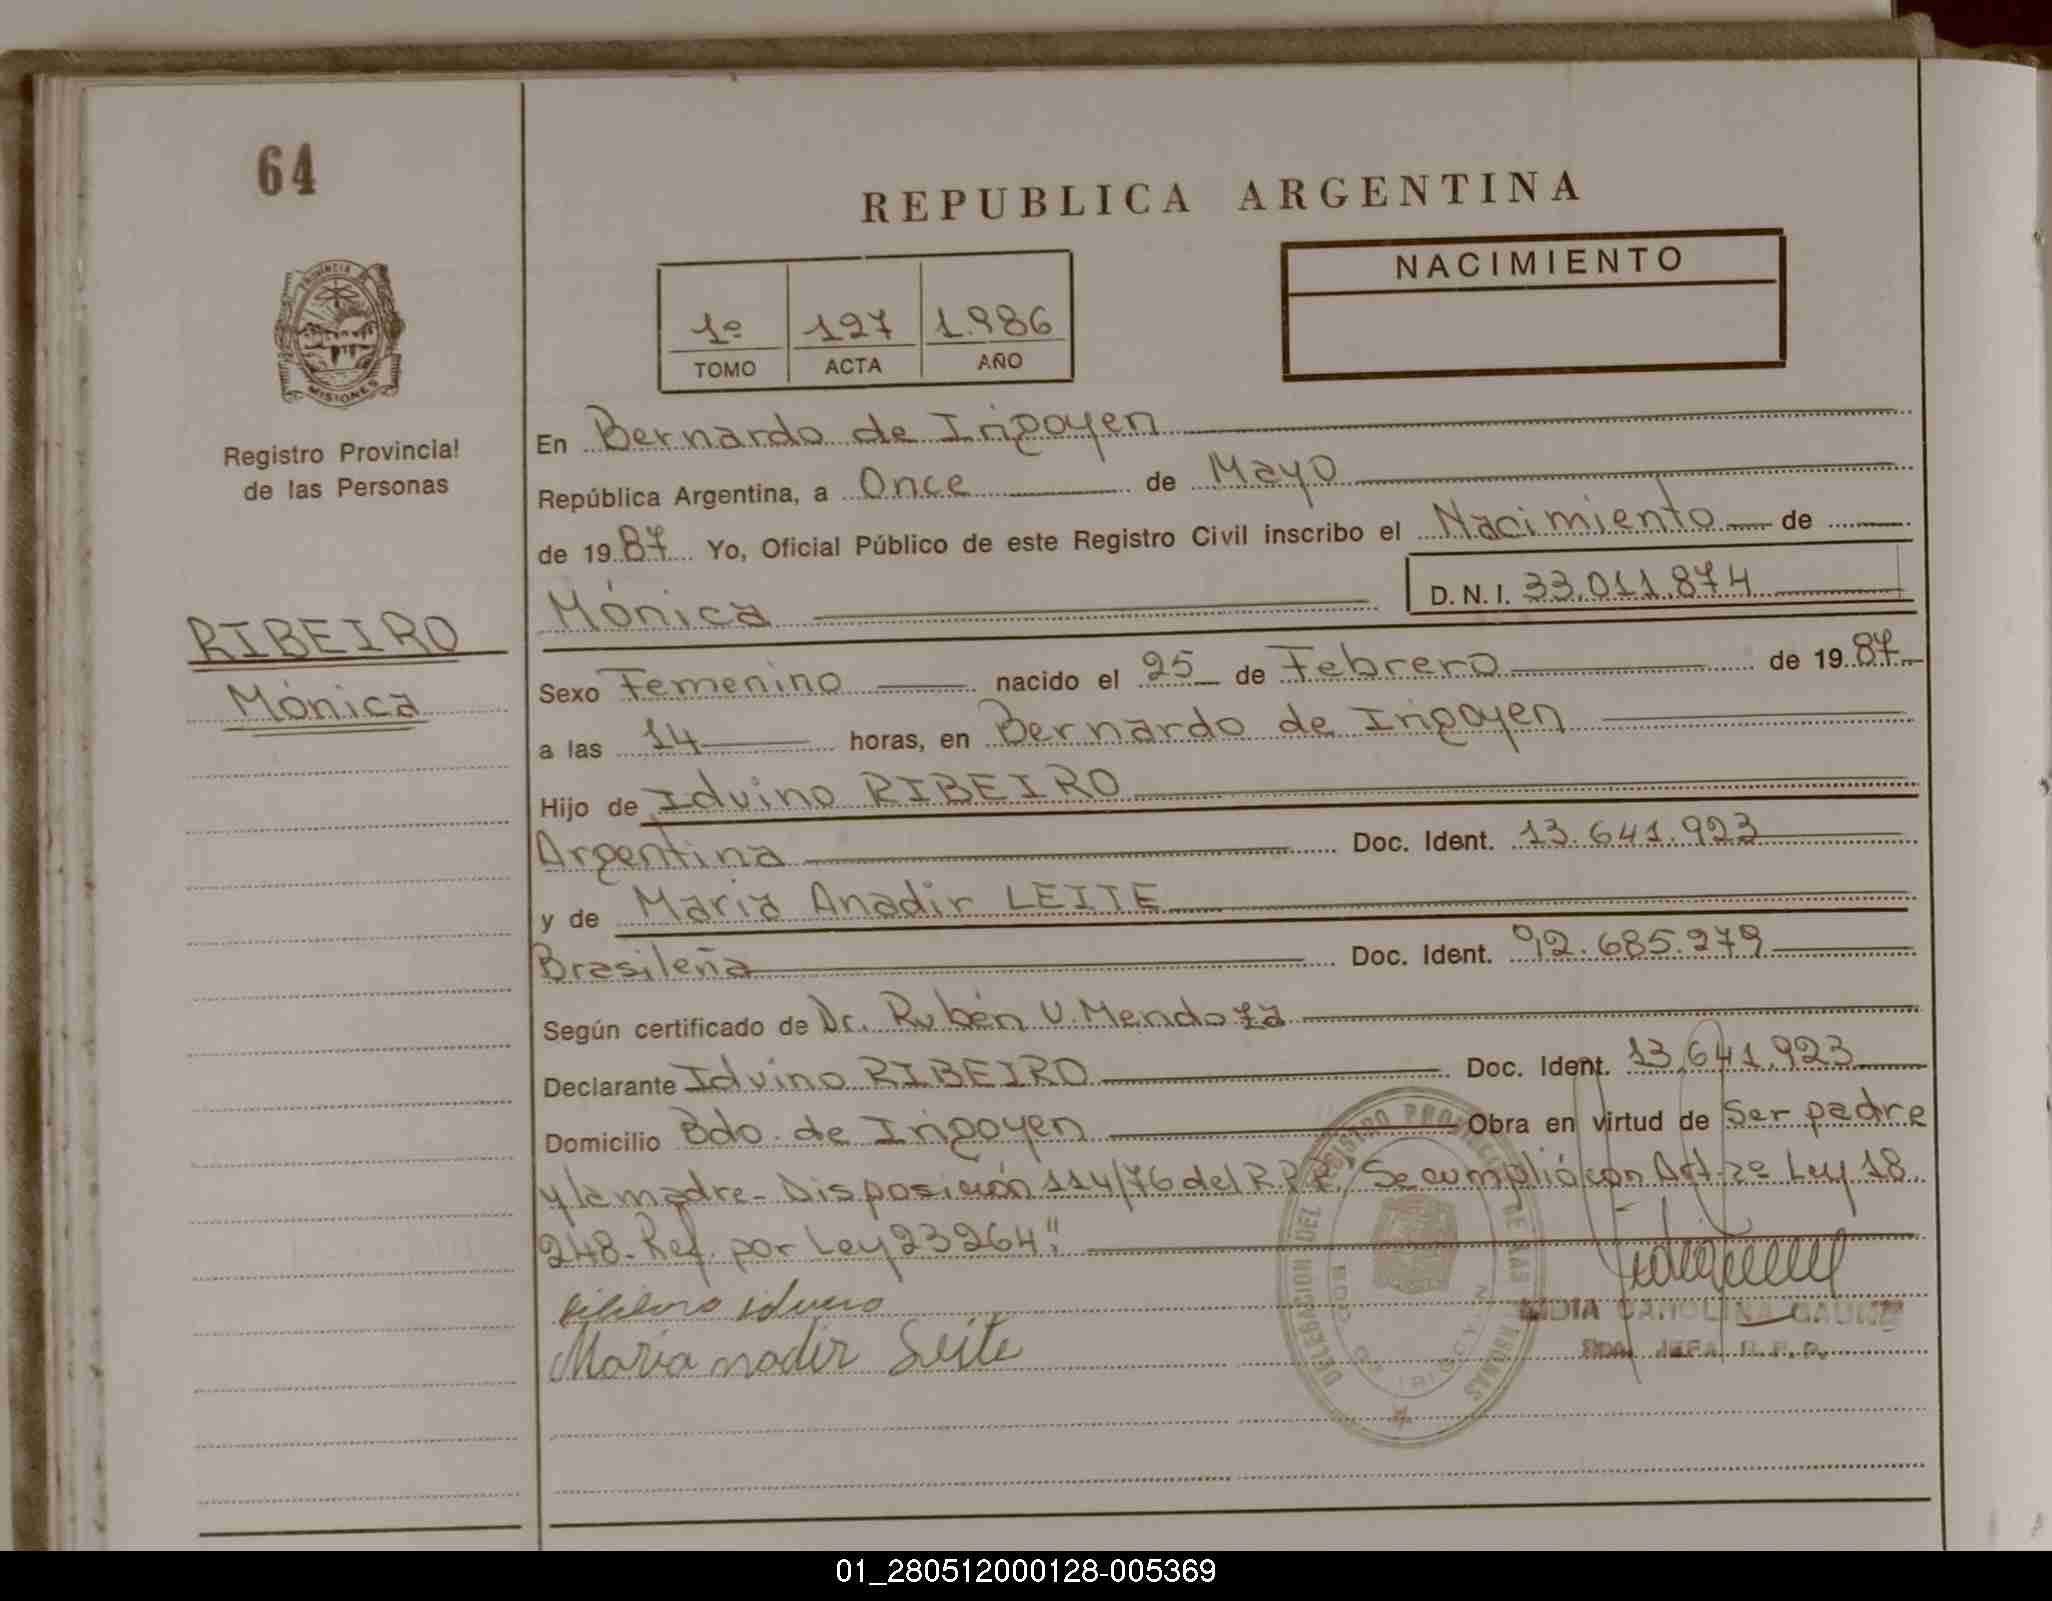 64
REPUBLICA ARGENTINA
NACIMIENTO
1º 127 1.986
TOMO ACTA AÑO
PROVINCIA
MISIONES
Registro Provincial
de las Personas
RIBEIRO
Mónica
En Bernardo de Irigoyen
República Argentina, a Once de Mayo
de 1987 Yo, Oficial Público de este Registro Civil inscribo el Nacimiento de
Mónica D.N.I. 33.011.874
Sexo Femenino nacido el 25 de Febrero de 1987
a las 14 horas, en Bernardo de Irigoyen
Hijo de Idvino RIBEIRO
Argentina Doc. Ident. 13.641.923
y de Maria Anadir LEITE
Brasileña Doc. Ident. 92.685.279
Según certificado de Dr. Rubén U. Mendoza
Declarante Idvino RIBEIRO Doc. Ident. 13.641.923
Domicilio Bdo. de Irigoyen Obra en virtud de Ser padre
y la madre - Disposición 114/76 del R.P.P. "Se cumplió con Art. 2º Ley 18.
248 - Ref. por Ley 23264".
Ribeiro Idvino
Maria nadir Leite
DELEGACION DEL REGISTRO PROVINCIAL DE LAS PERSONAS
BDO. DE IRIGOYEN
LIDIA CAROLINA
JEFA R.P.P.
01_280512000128-005369